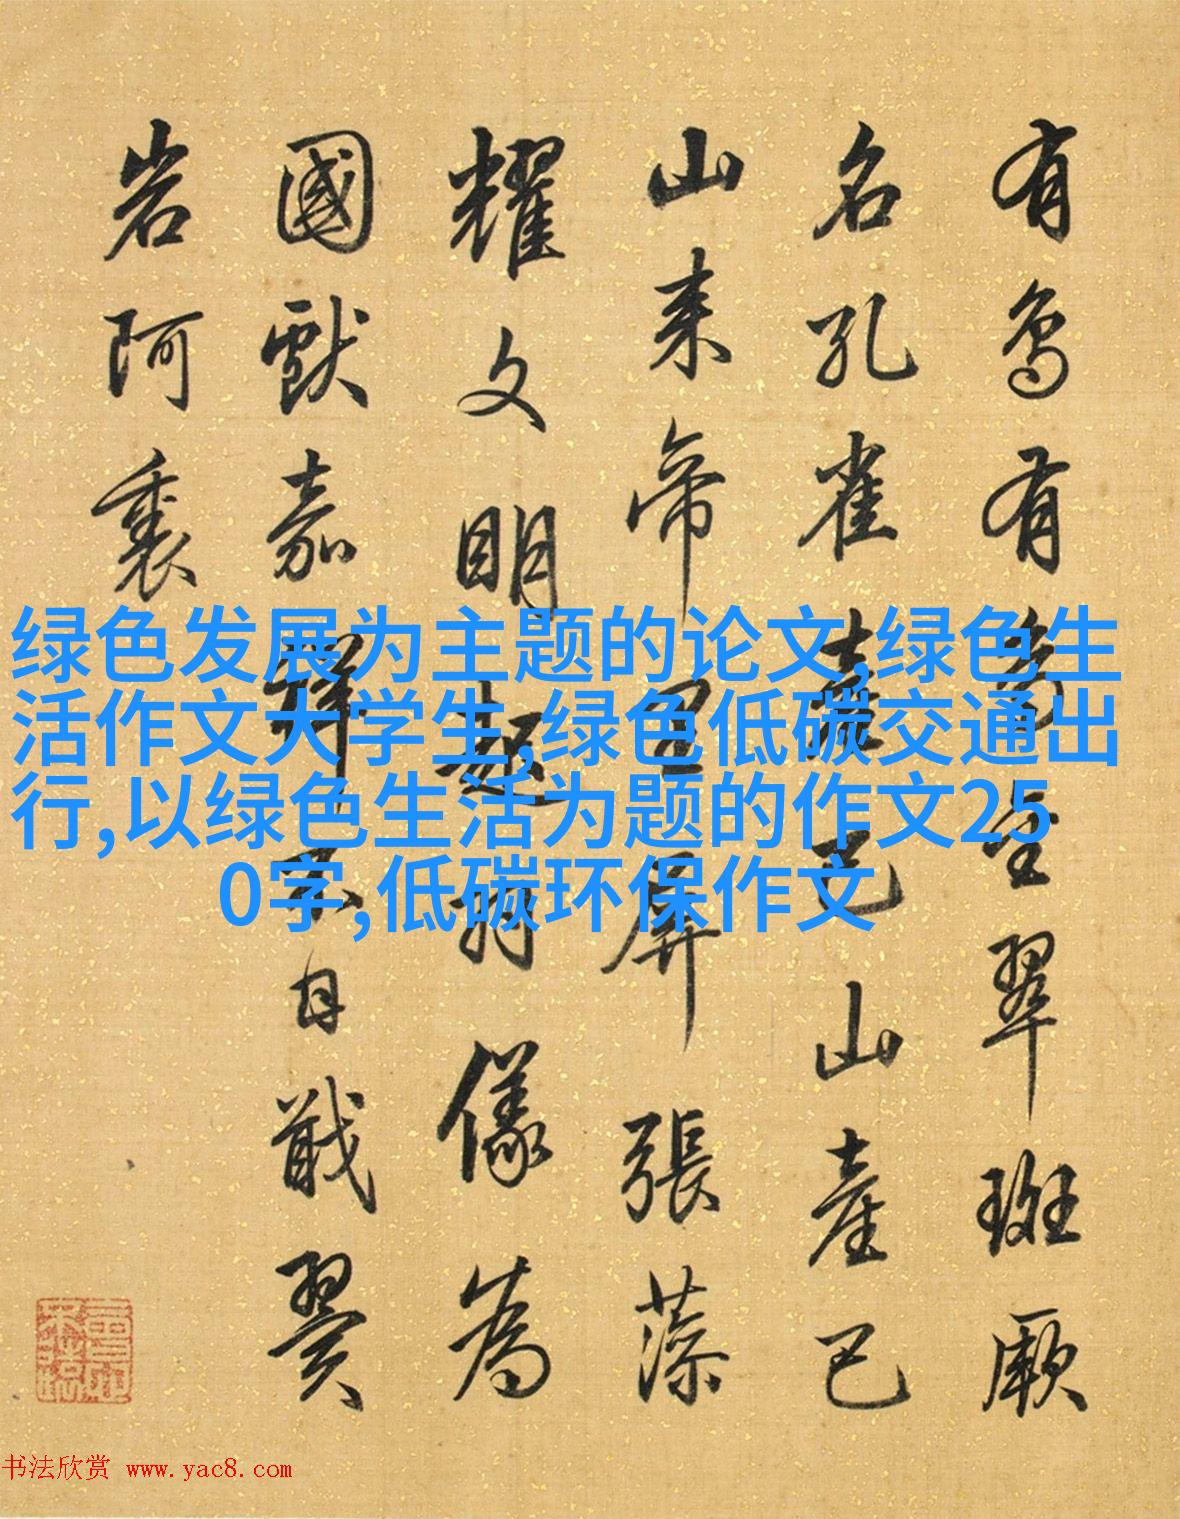 有鳥有鳥金翠斑厥
名孔雀產巴山產巴
山来帝里屏張藻
耀文明起羽儀為
國獻嘉祥不自戢翼
岩阿裏
绿色发展为主题的论文,绿色生
活作文大学生,绿色低碳交通出
行,以绿色生活为题的作文25
0字,低碳环保作文
书法欣赏 www.yac8.com